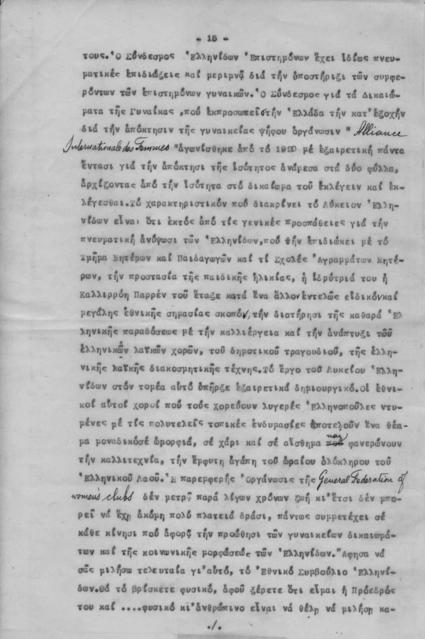 - 15 -
τους. Ὁ Σύνδεσμος Ἑλληνίδων Ἐπιστημόνων ἔχει ἰδίως πνευ-
ματικές ἐπιδιώξεις καί μεριμνᾷ διά τήν ὑποστήριξι τῶν συμφε-
ρόντων τῶν ἐπιστημόνων γυναικῶν. Ὁ Σύνδεσμος γιά τά Δικαιώ-
ματα τῆς Γυναίκας, πού ἐκπροσωπεῖ στήν Ἑλλάδα τήν κατ' ἐξοχήν
διά τήν ἀπόκτησιν τῆς γυναικείας ψήφου ὀργάνωσιν "Alliance
Internationale des Femmes" ἀγωνίσθηκε ἀπό τό 1920 μέ ἐξαιρετική πάντα
ἔντασι γιά τήν ἀπόκτησι τῆς ἰσότητος ἀνάμεσα στά δύο φύλλα,
ἀρχίζοντας ἀπό τήν ἰσότητα στό δικαίωμα τοῦ ἐκλέγειν καί ἐκ-
λέγεσθαι. Τό χαρακτηριστικόν πού διακρίνει τό Λύκειον Ἑλλη-
νίδων εἶναι ὅτι ἐκτός ἀπό τίς γενικές προσπάθειες γιά τήν
πνευματική ἀνύψωσι τῶν Ἑλληνίδων, πού τήν ἐπιδιώκει μέ τό
Τμῆμα Μητέρων καί Παιδαγωγῶν καί τί Σχολές Ἀγραμμάτων Μητέ-
ρων, τήν προστασία τῆς παιδικῆς ἡλικίας, ἡ ἱδρύτριά του ἡ
Καλλιρρόη Παρρέν τοῦ ἔταξε κατά ἕνα ἄλλον ἐντελῶς εἰδικόν καί
μεγάλης ἐθνικῆς σημασίας σκοπόν, τήν διατήρησι τῆς καθαρά Ἑλ-
ληνικῆς παραδόσεως μέ τήν καλλιέργεια καί τήν ἀνάπτυξι τῶν
ἑλληνικῶν λαϊκῶν χορῶν, τοῦ δημοτικοῦ τραγουδιοῦ, τῆς ἑλλη-
νικῆς λαϊκῆς διακοσμητικῆς τέχνης. Τό ἔργο τοῦ Λυκείου Ἑλλη-
νίδων στόν τομέα αὐτό ὑπῆρξε ἐξαιρετικά δημιουργικό. Οἱ ἐθνι-
κοί αὐτοί χοροί πού τούς χορεύουν λυγερές Ἑλληνοπούλες ντυ-
μένες μέ τίς πολυτελεῖς τοπικές ἐνδυμασίες ἀποτελοῦν ἕνα θέα-
μα μοναδικό σέ ὀμορφιά, σέ χάρι καί σέ αἴσθημα που φανερώνουν
τήν καλλιτεχνία, τήν ἔμφυτη ἀγάπη τοῦ ὡραίου ὁλόκληρου τοῦ
Ἑλληνικοῦ Λαοῦ. Ἡ παρεμφερής Ὀργάνωσις τῆς General Federation of
womens clubs δέν μετρᾷ παρά λίγων χρόνων ζωή κι' ἔτσι δέν μπο-
ρεῖ νά ἔχῃ ἀκόμη πολύ πλατειά δρᾶσι, πάντως συμμετέχει σέ
κάθε κίνησι πού ἀφορᾷ τήν προώθησι τῶν γυναικείων δικαιωμά-
των καί τῆς κοινωνικῆς μορφώσεως τῶν Ἑλληνίδων. Ἄφησα νά
σᾶς μιλήσω τελευταία γι' αὐτό, τό Ἐθνικό Συμβούλιο Ἑλληνί-
δων. Θά τό βρίσκετε φυσικό, ἀφοῦ ξέρετε ὅτι εἶμαι ἡ Πρόεδρός
του καί .... φυσικό κι' ἀνθρώπινο εἶναι νά θέλῃ νά μιλήσῃ κα-
./.